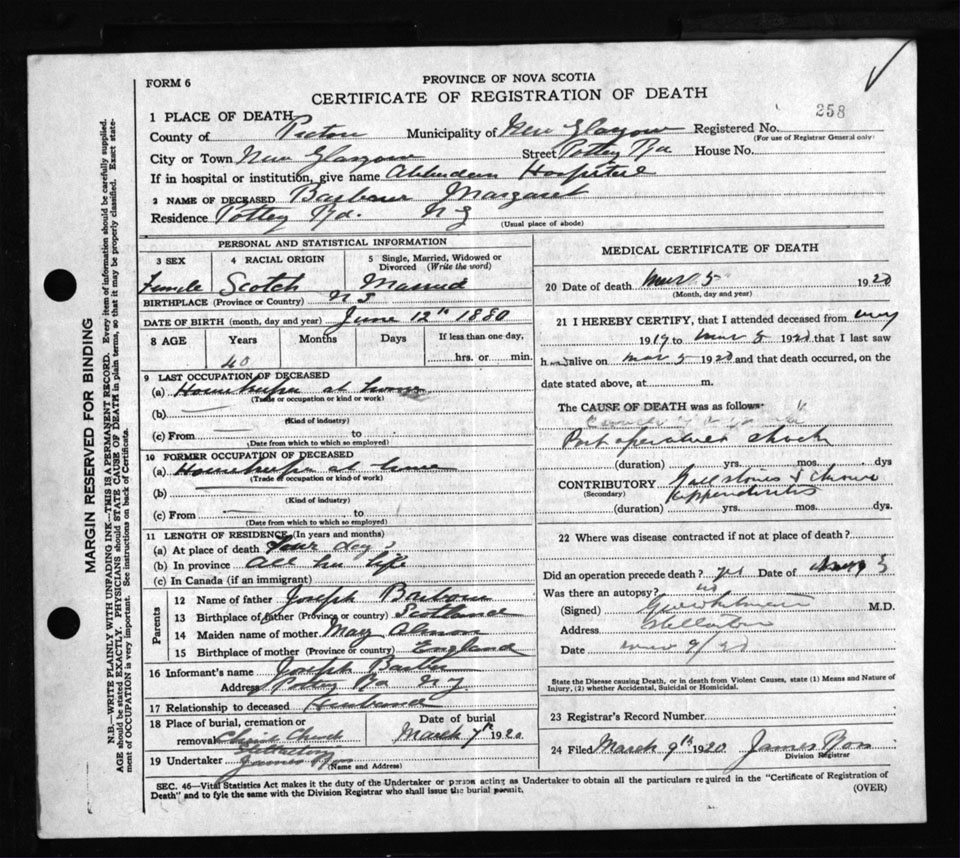 FORM 6
PROVINCE OF NOVA SCOTIA
258
CERTIFICATE OF REGISTRATION OF DEATH
1 PLACE OF DEATH
County of Pictou Municipality of New Glasgow Registered No.
(For use of Registrar General only)
City or Town New Glasgow Street Pottery Rd House No.
If in hospital or institution, give name Abberdeen Hospital
2 NAME OF DECEASED Margaret
Residence Pottey Rd. N G
(Usual place of abode)
PERSONAL AND STATISTICAL INFORMATION
3 SEX 4 RACIAL ORIGIN 5 Single, Married, Widowed or Divorced (Write the word)
Female Scotch Married
BIRTHPLACE (Province or Country) N S
DATE OF BIRTH (month, day and year) June 12th 1880
8 AGE Years Months Days If less than one day,
40 hrs. or min.
9 LAST OCCUPATION OF DECEASED
(a) Housekeeper at home
(Trade or occupation or kind of work)
(b)
(Kind of industry)
(c) From to
(Date from which to which so employed)
10 FORMER OCCUPATION OF DECEASED
(a) Housekeeper at home
(Trade or occupation or kind of work)
(b)
(Kind of industry)
(c) From to
(Date from which to which so employed)
11 LENGTH OF RESIDENCE (In years and months)
(a) At place of death four days
(b) In province All her life
(c) In Canada (if an immigrant)
Parents
12 Name of father Joseph
13 Birthplace of father (Province or country) Scotland
14 Maiden name of mother May
15 Birthplace of mother (Province or country) England
16 Informant's name Joseph
Address Pottey Rd N G
17 Relationship to deceased Husband
18 Place of burial, cremation or removal Christ Church Date of burial
March 7th 1920
19 Undertaker James Ross
(Name and Address)
MEDICAL CERTIFICATE OF DEATH
20 Date of death Mar 5 1920
(Month, day and year)
21 I HEREBY CERTIFY, that I attended deceased from
1919 to Mar 5 1920 that I last saw
h alive on Mar 5 1920 and that death occurred, on the
date stated above, at m.
The CAUSE OF DEATH was as follows:
Post operative shock
(duration) yrs. mos. dys
CONTRIBUTORY Gall stones & chronic
(Secondary) Appendicitis
(duration) yrs. mos. dys.
22 Where was disease contracted if not at place of death?
Did an operation precede death? yes Date of 5
Was there an autopsy? no
(Signed) M.D.
Address Stellarton
Date Mar 9/20
State the Disease causing Death, or in death from Violent Causes, state (1) Means and Nature of
Injury, (2) whether Accidental, Suicidal or Homicidal.
23 Registrar's Record Number
24 Filed March 9th 1920 James Ross
Division Registrar
SEC. 46—Vital Statistics Act makes it the duty of the Undertaker or person acting as Undertaker to obtain all the particulars required in the "Certificate of Registration of
Death" and to fyle the same with the Division Registrar who shall issue the burial permit.
(OVER)
MARGIN RESERVED FOR BINDING
N.B.—WRITE PLAINLY WITH UNFADING INK—THIS IS A PERMANENT RECORD. Every item of information should be carefully supplied.
AGE should be stated EXACTLY. PHYSICIANS should STATE CAUSE OF DEATH in plain terms, so that it may be properly classified. Exact state-
ment of OCCUPATION is very important. See instructions on back of Certificate.